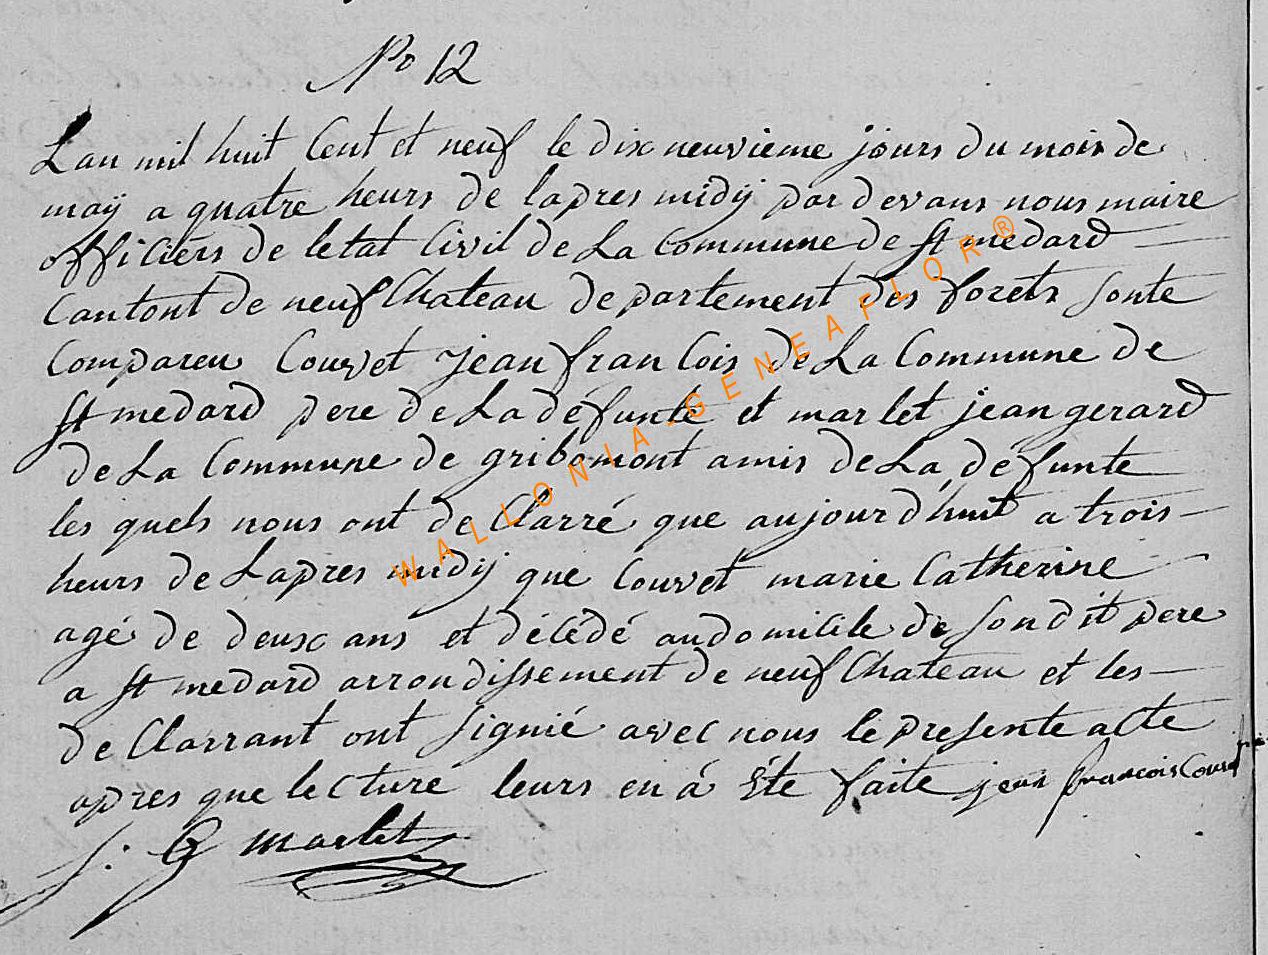 No 12
Lan mil huit Cent et neuf le dix neuvieme jours du mois de
maÿ a quatre heurs de lapres midÿ par devans nous maire
officiers de letat Civil de La Commune de St medard
Cantont de neufChateau departement des forets sonte
Compareu Couvet jean francois de La Commune de
St medard pere de La defunte et marlet jean gerard
de La Commune de gribomont amis de La defunte
les quels nous ont de Clarré que aujourd'huit a trois
heurs de Lapres midÿ que Couvet marie Catherine
agé de deux ans et décédé audomicile de son dit pere
a St medard arrondissement de neufChateau et les
de Clarrant ont signié avec nous le presente acte
apres que lecture leurs en á été faite jean francois Couvet
j: G marlet
WALLONIA-GENEAFLOR®